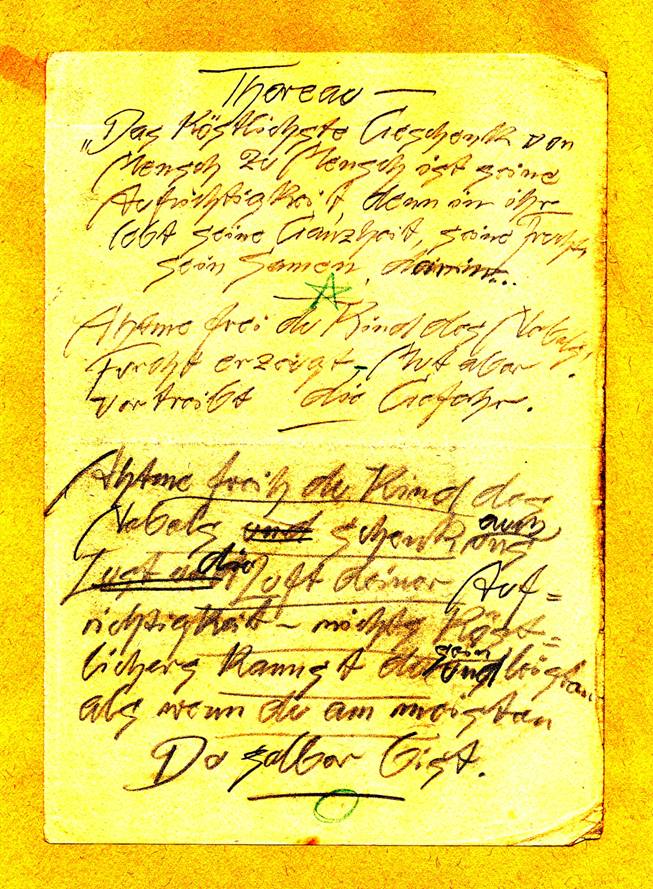 Thoreau —
„Das Köstlichste Geschenk von
Mensch zu Mensch ist seine
Aufrichtigkeit, denn in ihr
lebt seine Ganzheit, seine
sein Samen,
Ahtme frei du Kind des Nebels,
Furcht erzeugt, Mut aber
vertreibt die Gefahr.
Ahtme freih du Kind des
Nebels und schenk uns auch
Lust die Luft deiner Auf=
richtigkeit – nichts Köst=
lichers kannst du sein und
als wenn du am meisten
Du selber bist.